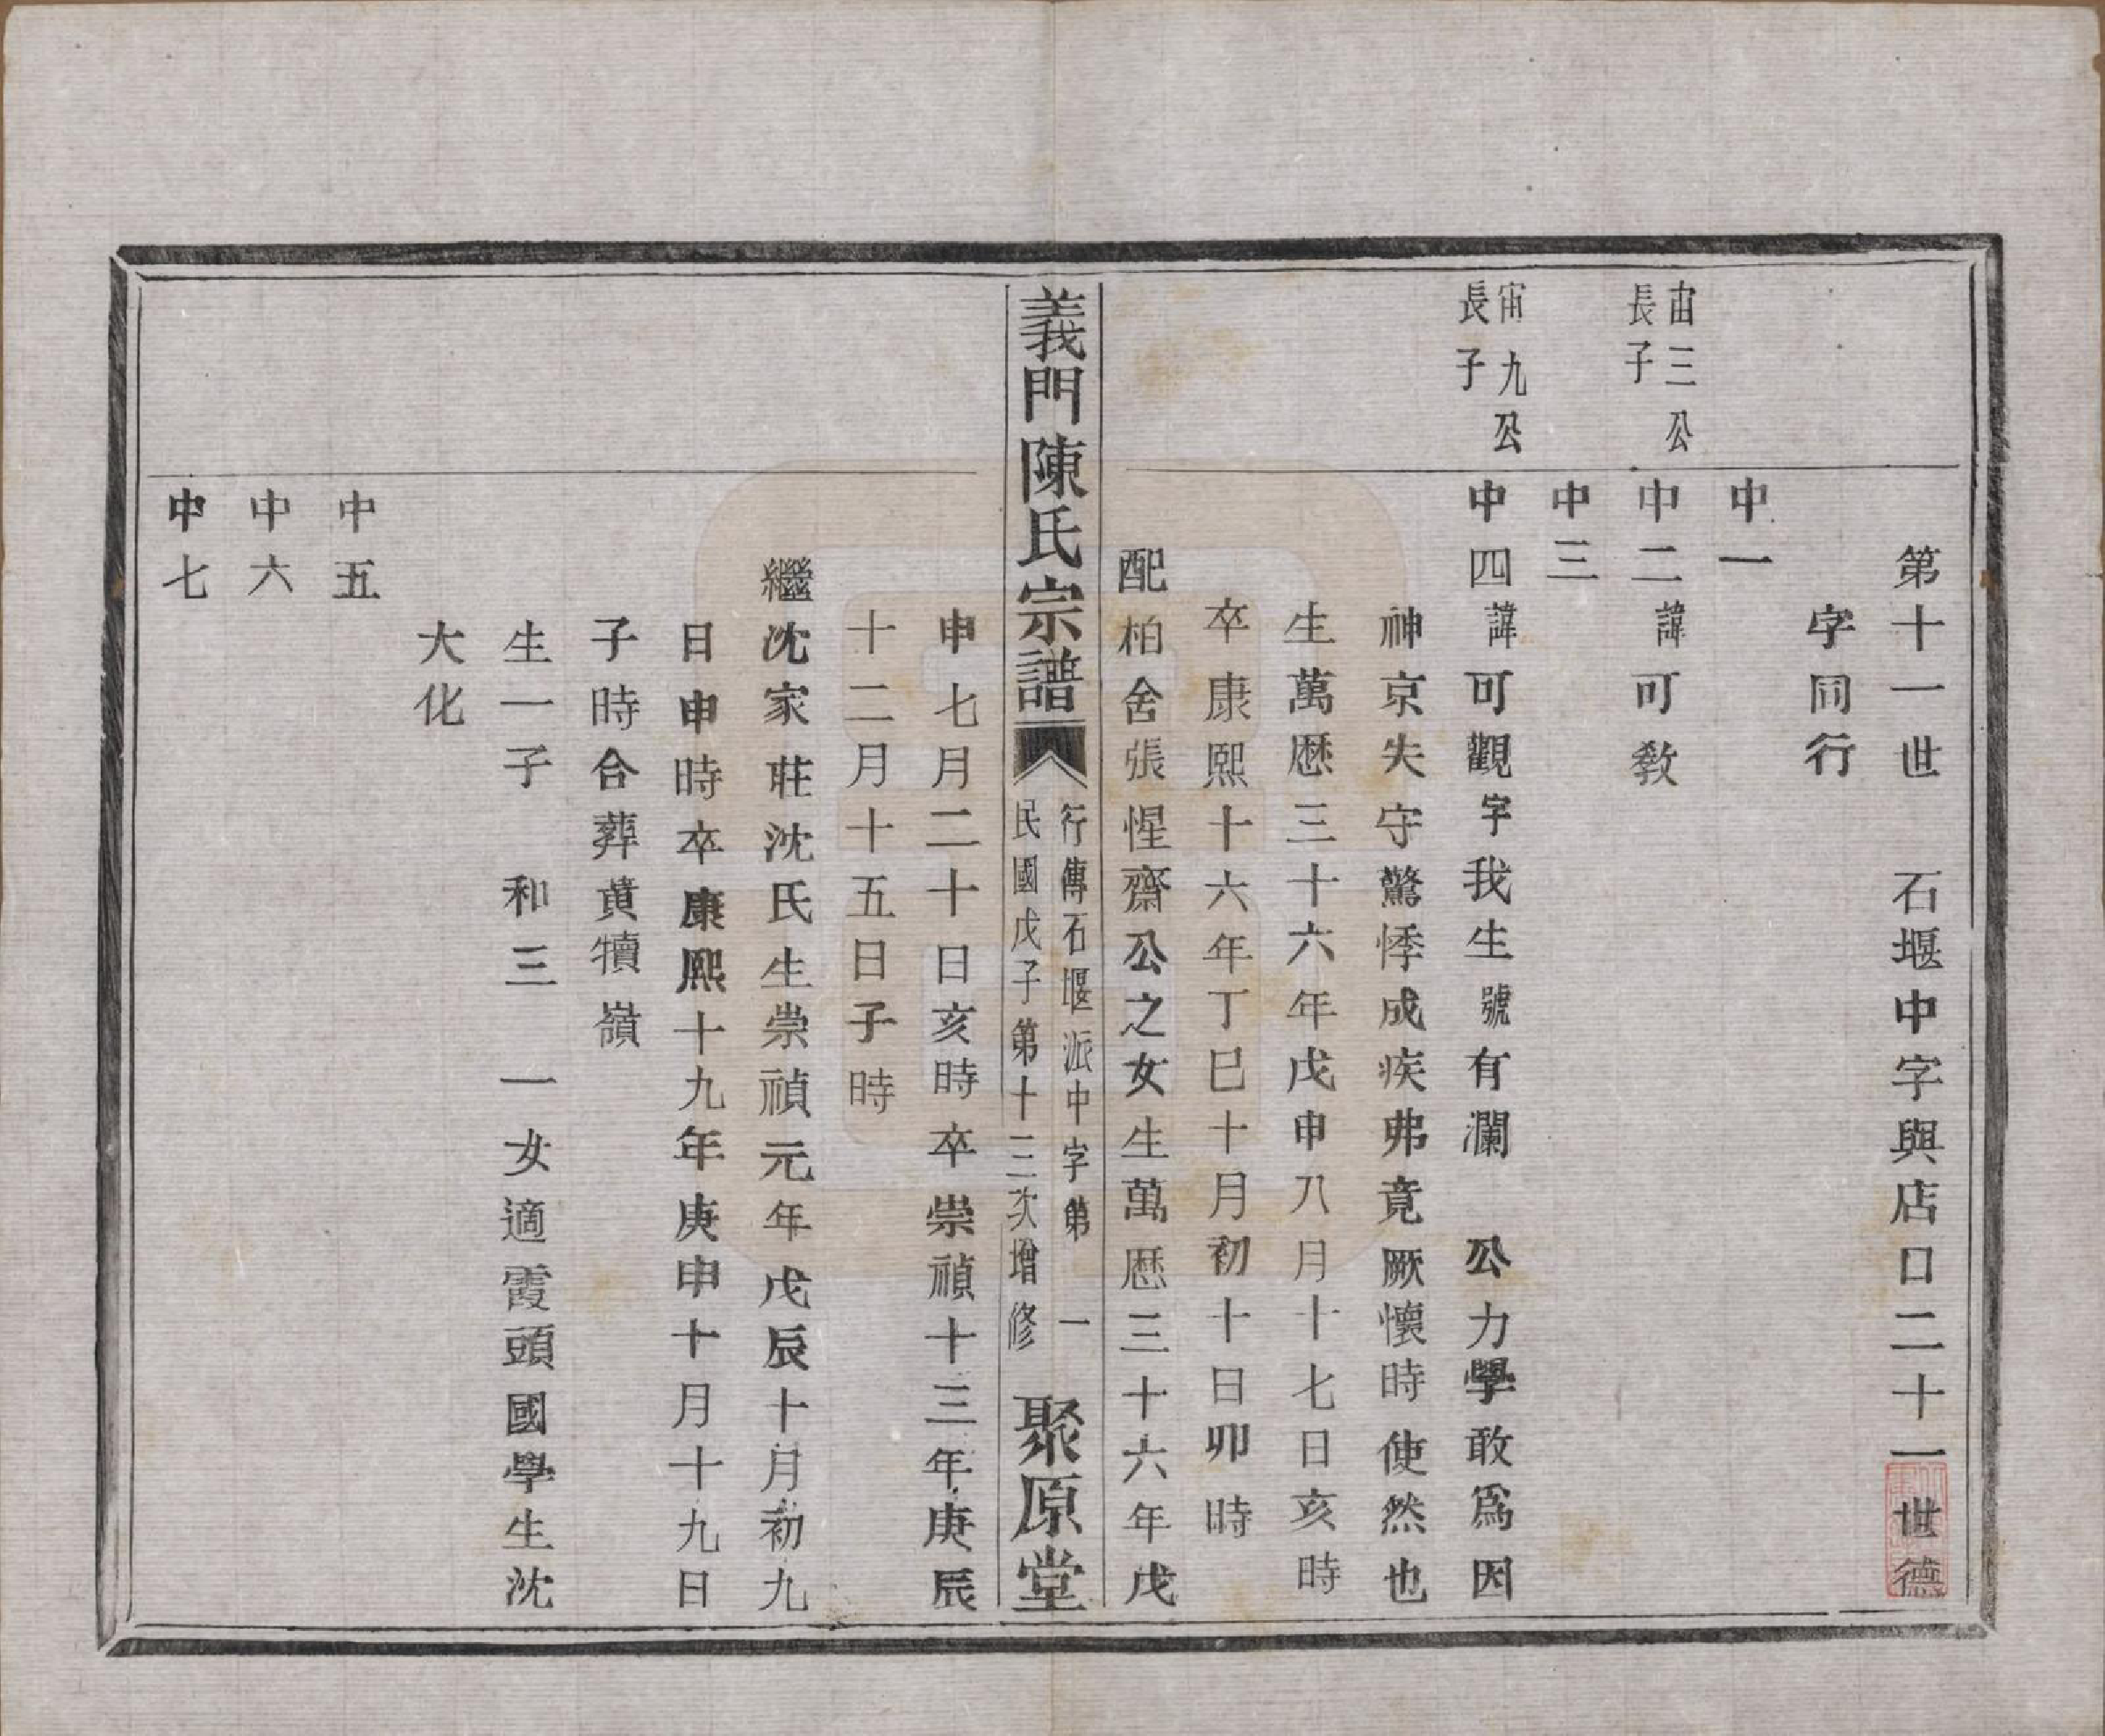 第十一世　石堰中字與店口二十一世德
字同行
中一
宙三公
長子
中二諱可敎
中三
宙九公
長子
中四諱可觀字我生號有瀾　公力學敢爲因
神京失守驚悸成疾弗竟厥懷時使然也
生萬歷三十六年戊申八月十七日亥時
卒康熙十六年丁巳十月初十日卯時
配柏舍張惺齋公之女生萬歷三十六年戊
義門陳氏宗譜
行傳石堰派中字第　一
民國戊子第十三次增修
聚原堂
申七月二十日亥時卒崇禎十三年庚辰
十二月十五日子時
繼沈家莊沈氏生崇禎元年戊辰十月初九
日申時卒康熙十九年庚申十月十九日
子時合葬黃犢嶺
生一子　和三　一女適霞頭國學生沈
大化
中五
中六
中七